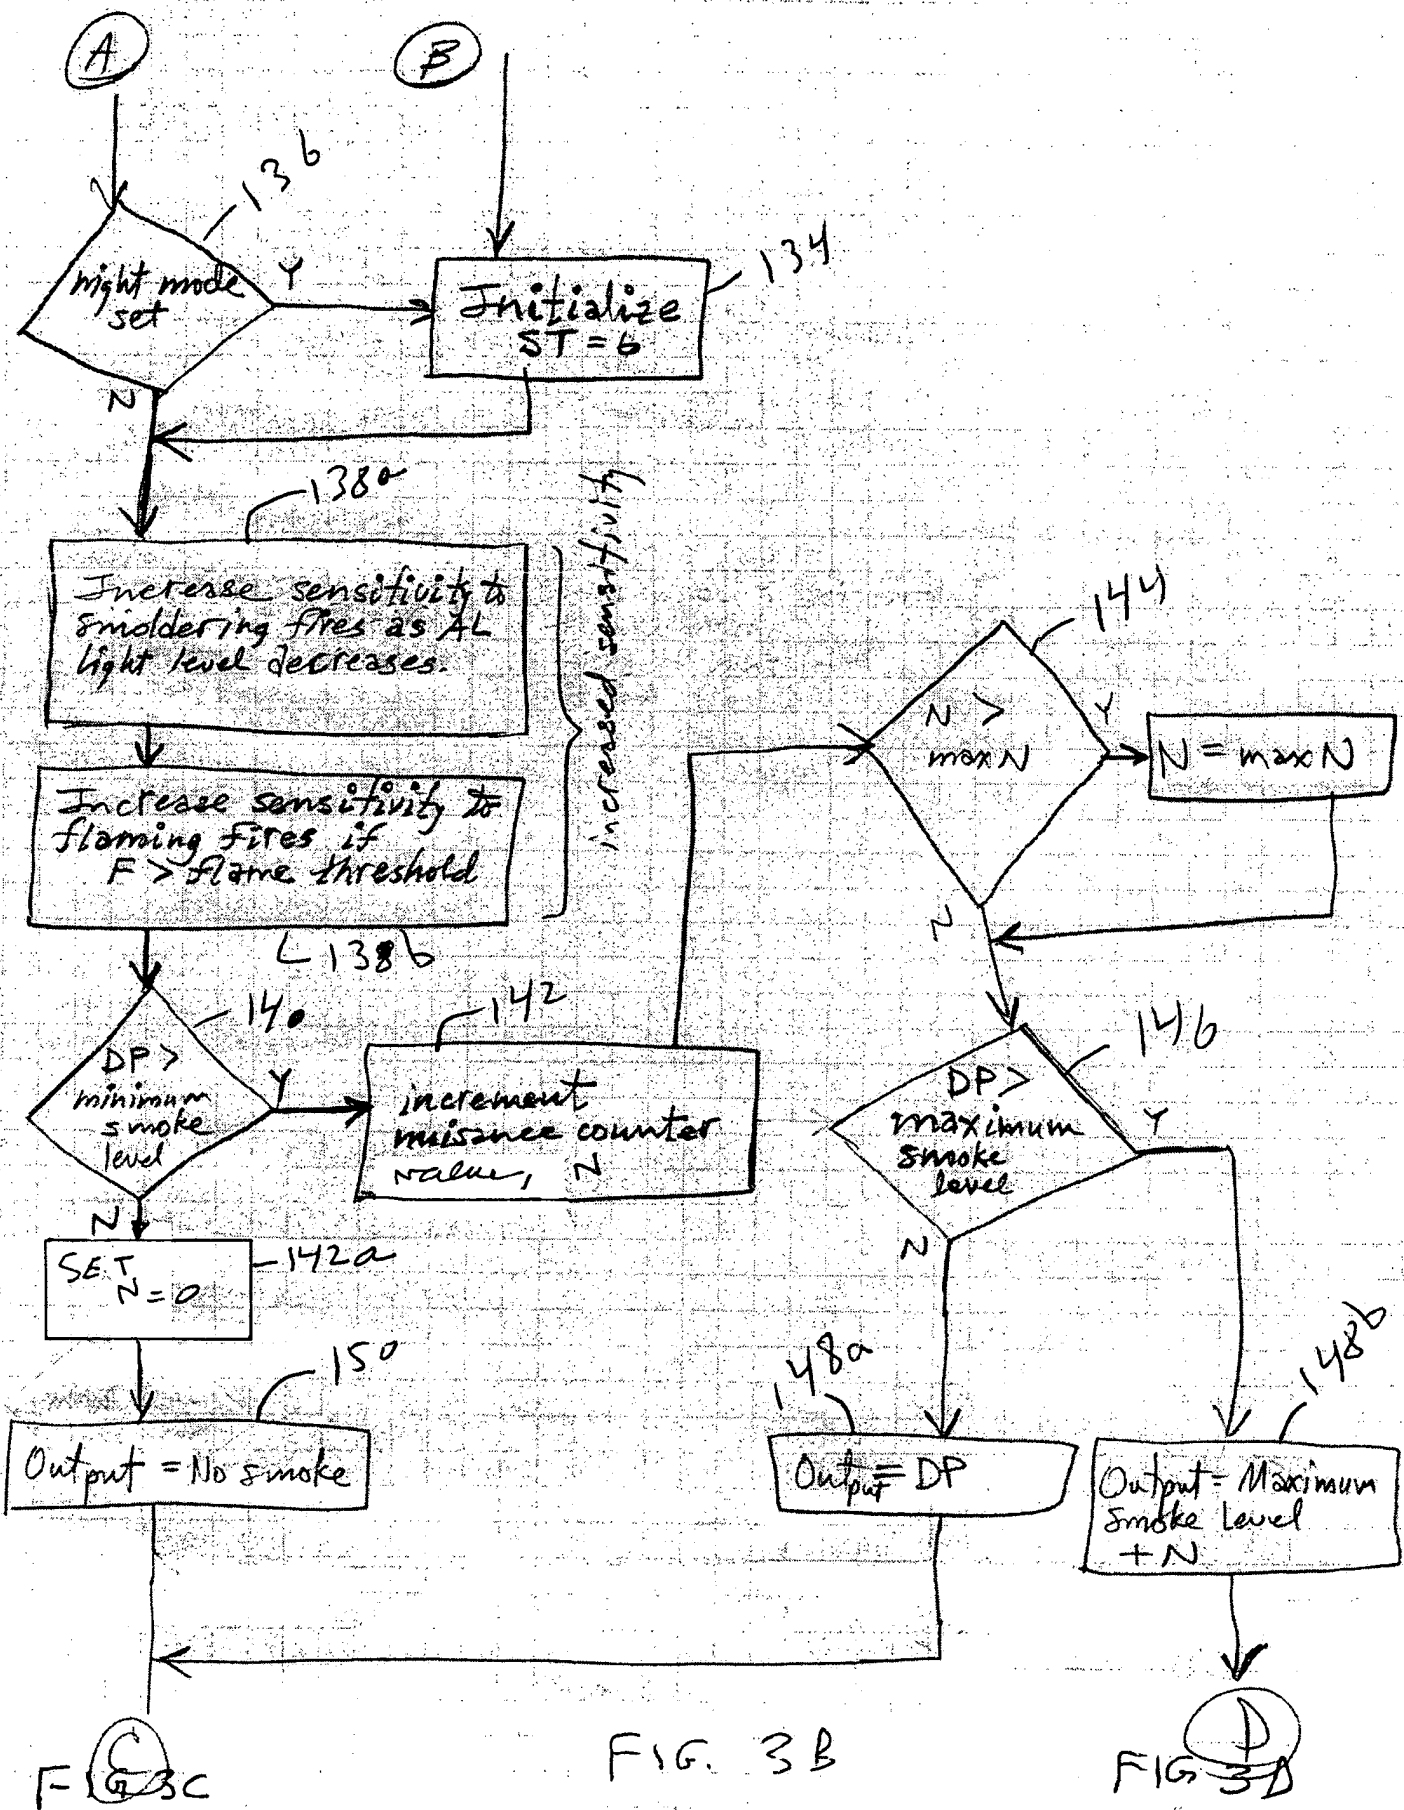 A
B
136
night mode
set
Y
N
134
Initialize
ST = 6
138a
Increase sensitivity to
smoldering fires as AL
light level decreases.
increased sensitivity
Increase sensitivity to
flaming fires if
F > flame threshold
138b
140
DP >
minimum
smoke
level
Y
N
142
increment
nuisance counter
value, N
SET
N = 0
142a
150
Output = No smoke
144
N >
max N
Y
N
N = max N
146
DP >
maximum
smoke
level
Y
N
148a
Output = DP
148b
Output = Maximum
smoke Level
+ N
C
FIG 3C
FIG. 3B
D
FIG 3D